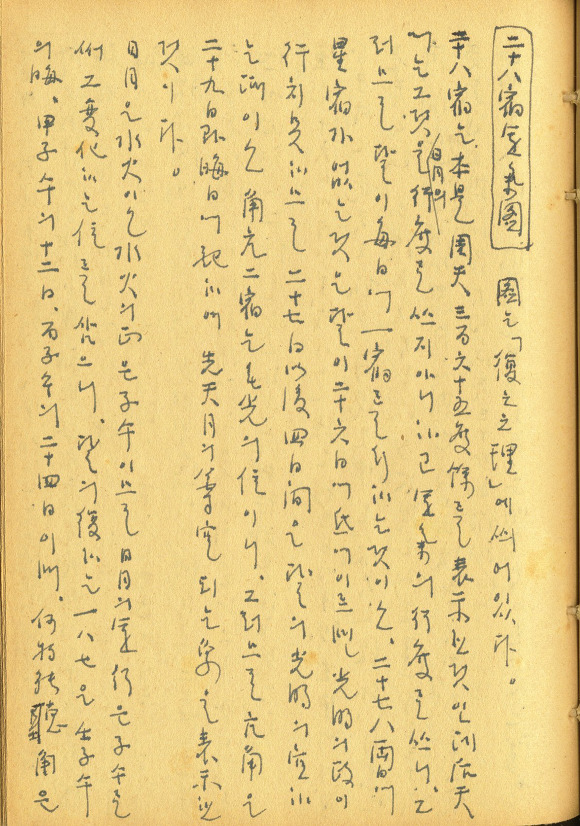 二十八宿運氣圖 圖는「復之之理」에 씌어있다.
二十八宿는 本是 周天 三百六十五度餘로 表示한 것인데 后天
에는 그것은 日月의 行度를 쓰지아니하고 運氣의 行度를 쓰니, 그
러므로 달이 每日에 一宿를 行하는것이오, 二十七八兩日에
星宿가 없는것은 달이 二十六日에 氐에이르면 光明의 政이
行치못하므로 二十七日以後 四日間은 달의 光明의 하
는 때이오 角亢二宿는 生光의 位이니, 그러므로 亢角은
二十九日即晦日에 起하며 先天月의 尊空되는 象을 表示한
것이다.
日月은 水火이오 水火의 正은 子午이므로 日月의 運行은 子午를
써 그 變化하는 位로 삼으니, 달의 復하는 一八七은 壬子午
의晦, 甲子午의十二日, 丙子午의 二十四日이며, 何物 聽角은